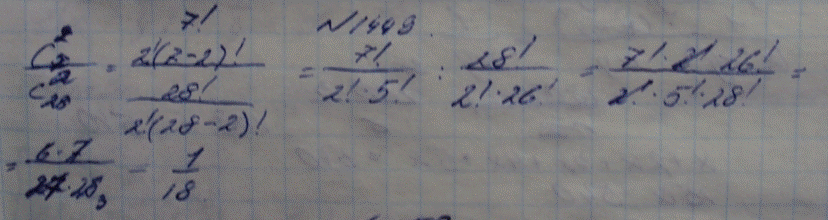 N1449.
C_7^2 / C_28^2 = (7! / 2!(7-2)!) / (28! / 2!(28-2)!) = 7! / 2!·5! : 28! / 2!·26! = 7!·2!·26! / 2!·5!·28! =
= 6·7 / 27·28 = 1 / 18